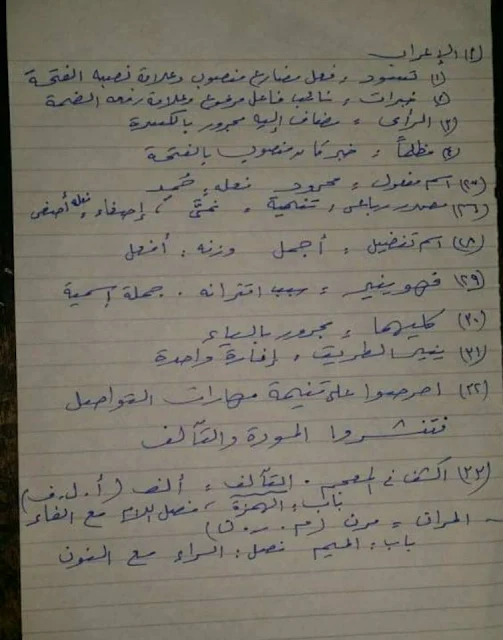 (٢) الإعراب
(١) تسود : فعل مضارع منصوب وعلامة نصبه الفتحة
(٢) خبرات : نائب فاعل مرفوع وعلامة رفعه الضمة
(٣) الرأى : مضاف إليه مجرور بالكسرة
(٤) مظلماً : خبر منصوب بالفتحة
اسم مفعول : محمود فعله : حُمِد
مصدر رباعى : تنمية : نمَّى ، إصغاء : فعله أصغى
(٢٨) اسم تفضيل : أجمل وزنه : أفعل
(٢٩) فهو ينير : سبب اقترانه . جملة إسمية
(٣٠) كليهما : مجرور بالياء
(٣١) ينير الطريق : إنارة واحدة
(٣٢) احرصوا على تنمية مهارات التواصل
فتنشروا المودة والتآلف
(٣٣) اكشف فى المعجم . التآلف : ألف (أ . ل . ف)
باب : الهمزة ، فصل اللام مع الفاء
- المران : مرن (م . ر . ن)
باب : الميم فصل : الراء مع النون